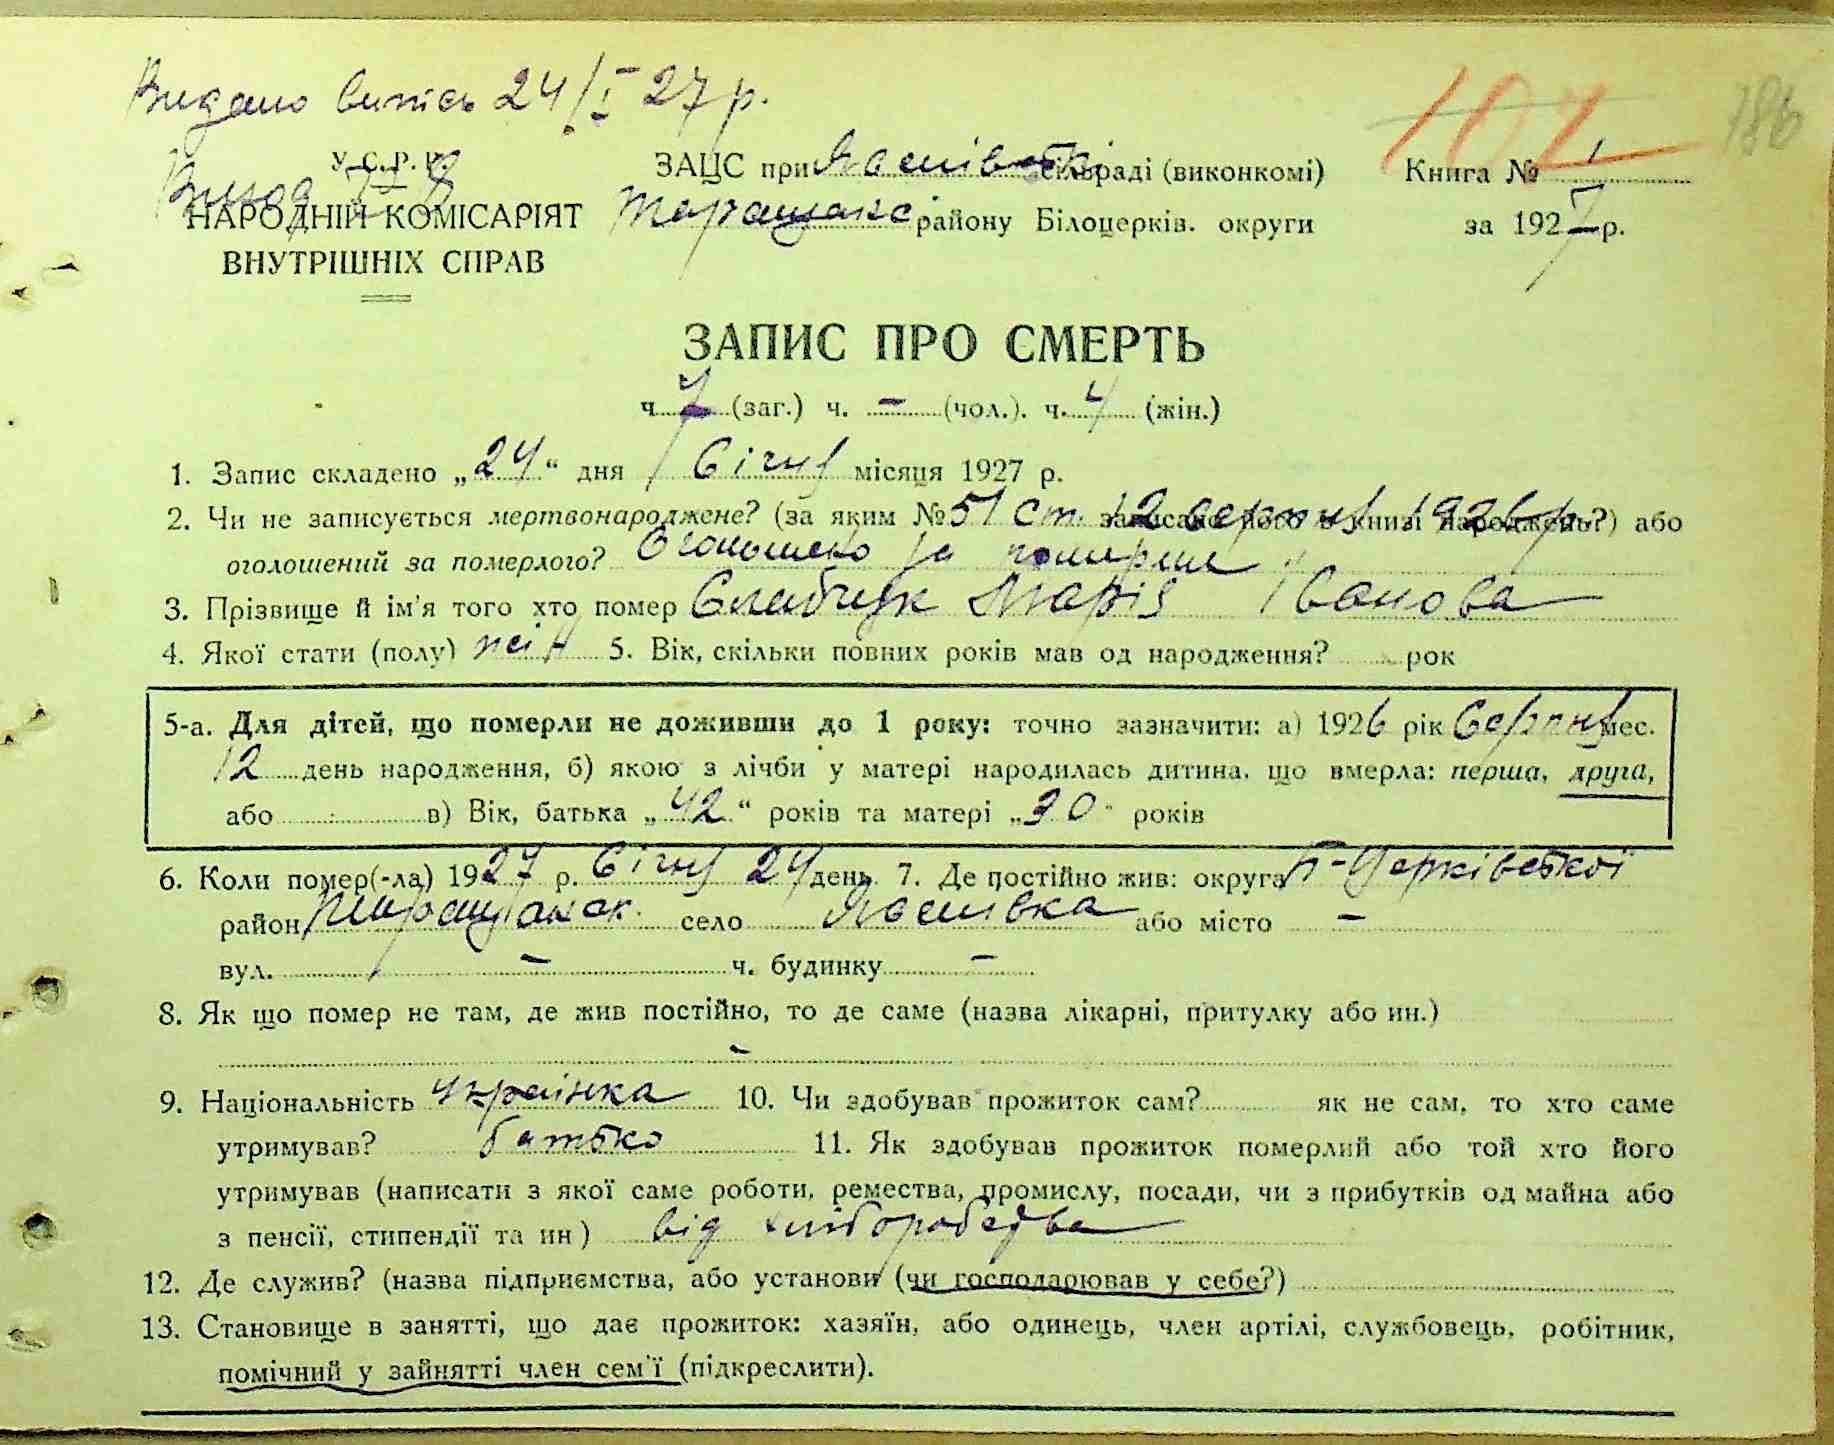 Видано витяг 24/I 27 р.
107 186
У.С.Р.Р. ЗАЦС при Лосятівській сільраді (виконкомі) Книга № 1
НАРОДНІЙ КОМІСАРІЯТ Таращанс. району Білоцерків. округи за 1927 р.
ВНУТРІШНІХ СПРАВ
ЗАПИС ПРО СМЕРТЬ
ч. 7 (заг.) ч. - (чол.). ч. 4 (жін.)
1. Запис складено „24“ дня Січня місяця 1927 р.
2. Чи не записується мертвонароджене? (за яким № 51 ст. 12 серпня 1926 р. записано його в книзі народжень?) або
оголошений за померлого? Оголошено за померше
3. Прізвище й ім'я того хто помер Слабчук Марія Іванова
4. Якої стати (полу) жін 5. Вік, скільки повних років мав од народження? рок
5-а. Для дітей, що померли не доживши до 1 року: точно зазначити: а) 1926 рік Серпня мес.
12 день народження, б) якою з лічби у матері народилась дитина, що вмерла: перша, друга,
або в) Вік, батька „42“ років та матері „30“ років
6. Коли помер(-ла) 1927 р. Січня 24 день 7. Де постійно жив: округа Б-Церківської
район Таращанськ. село або місто -
вул. - ч. будинку -
8. Як що помер не там, де жив постійно, то де саме (назва лікарні, притулку або ин.)
-
9. Національність Українка 10. Чи здобував прожиток сам? як не сам, то хто саме
утримував? батько 11. Як здобував прожиток померлий або той хто його
утримував (написати з якої саме роботи, ремества, промислу, посади, чи з прибутків од майна або
з пенсії, стипендії та ин) від хліборобства
12. Де служив? (назва підприємства, або установи (чи господарював у себе?)
13. Становище в занятті, що дає прожиток: хазяїн, або одинець, член артілі, службовець, робітник,
помічний у зайнятті член сем'ї (підкреслити).